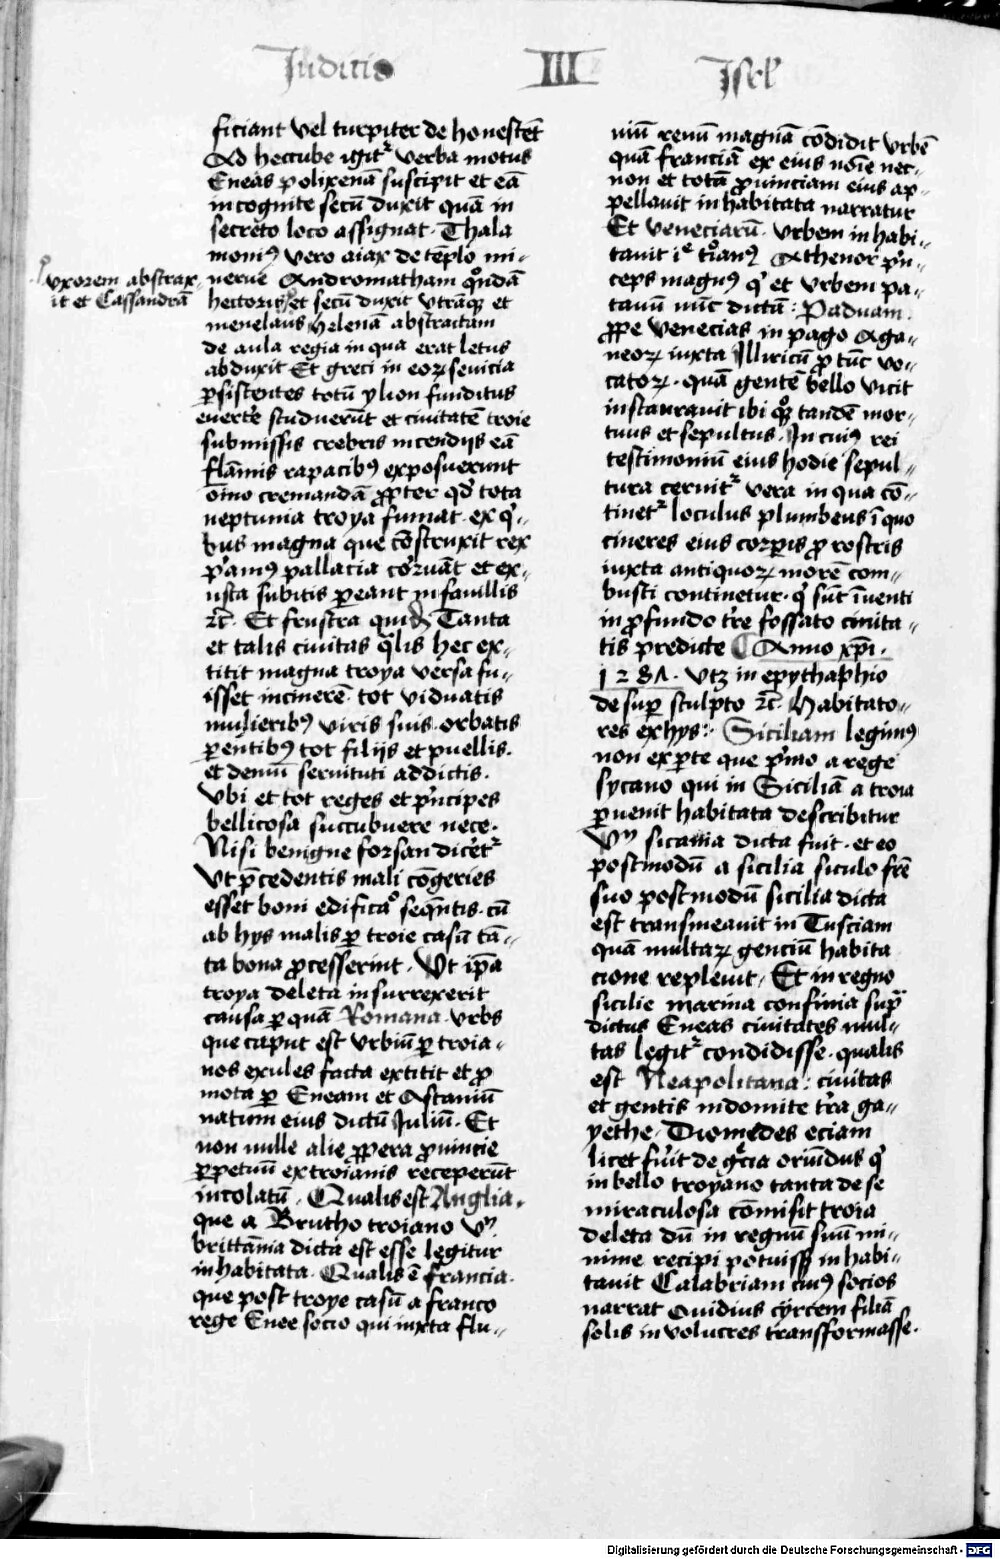 Judicis III Isrl
ficiant vel turpiter dehonestēt
Ad heccube igitᷣ verba motus
Eneas polixenā suscipit et eā
incognite secū duxit quā in
secreto loco assignat. Thala
moniꝰ vero aiax de tēplo mi-
nerve Andromatham quōdā
uxorem abstrax-
it et Cassandrā
hectoris et secū duxit utrāqꝫ et
menelaus helenā abstractam
de aula regia in qua erat letus
abduxit Et greci in eoꝝ sevicia
ꝑsistentes totū ylion funditus
evertͤe studuerūt et civitatē troie
submissis crebris incendijs eā
flāmis rapacibꝰ exposuerunt
oīno cremandā ꝓpter qd̄ tota
neptunia troya fumat. ex qͥ-
bus magna que cōstruxit rex
pͥamꝰ pallacia corruāt et ex-
usta subitis ꝑeant in favillis
⁊c̄. Et frustra quid Tanta
et talis civitas qͣlis hec ex-
titit magna troya versa fu-
isset in cinerē tot viduatis
mulieribꝰ viris suis. orbatis
ꝑentibꝰ tot filijs et puellis.
et demū servituti addictis.
Ubi et tot reges et pͥncipes
bellicosa succubuere nece.
Nisi benigne forsan dicētᷣ
Ut pͤcedentis mali cōgeries
esset boni edificaͦ seqͤntis. cū
ab hys malis ꝑ troie casū tā-
ta bona ꝓcesserint. Ut ip̄a
troya deleta insurrexerit
causa ꝑ quā Romana urbs
que caput est urbiū ꝑ troia-
nos exules facta extitit et ꝓ
mota ꝑ Eneam et Astaniū
natum eius dictū Juliū. Et
non nulle alie ꝓspera ꝓvincie
ꝑpetuū ex troianis receperūt
incolatū. Qualis est Anglia.
que a Brutho troiano Vn̄
brittānia dicta est esse legitur
inhabitata. Qualis ē francia.
que post troye casū a franco
rege Enee socio qui iuxta flu-
viū renū magnā cōdidit urbē
quā franciā ex eius noīe nec-
non et totā ꝓvinciam eius ap-
pellavit inhabitata narratur
Et Veneciarū. urbem inhabi-
tavit ieͤ troianꝰ Athenor pͥn-
ceps magnꝰ qͥ et urbem pa-
tavū nūc dictū: Paduam.
ꝓpe venecias in pago Aga-
neoꝝ iuxta Illiricū ꝓ tūc vo-
catoꝝ. quā gentē bello vicit
instauravit ibi qꝫ tandē mor-
tuus et sepultus. In cuiꝰ rei
testimoniū eius hodie sepul-
tura cernitᷣ vera in qua cō-
tinetᷣ loculus plumbeus ī quo
cineres eius corꝑis ꝓ rostris
iuxta antiquoꝝ morē com-
busti continetur. qͥ sūt īventi
in ꝓfundo tͤre fossato civita-
tis predicte Anno xp̄i.
1281. utꝫ in epythaphio
desuꝑ sculpto ⁊c̄. Habitato-
res ex hys: Siciliam legimꝰ
non ex ꝑte que pͥmo a rege
sycano qui in Siciliā a troia
ꝑvenit habitata describitur
Vn̄ sicania dicta fuit. et eo
postmodū a sicilia siculo frē
suo postmodū sicilia dicta
est transmeavit in Tusciam
quā multaꝝ genciū habita
cione replevit. Et in regno
sicilie marina confinia supͣ
dictus Eneas civitates mul-
tas legitᷣ condidisse. qualis
est Neapolitana: civitas
et gentis indomite tͤra ga-
yethe. Diomedes eciam
licet fuīt de gͤcia oriūdus qͥ
in bello troyano tanta de se
miraculosa cōmisit troia
deleta dū in regnū suū mi-
nime recipi potuisset inhabi-
tavit Calabriam cuiꝰ socios
narrat Ovidius cyrcem filiā
solis in volucres transformasse.
Digitalisierung gefördert durch die Deutsche Forschungsgemeinschaft - DFG